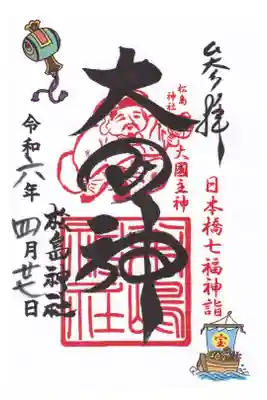 奉拝
日本橋七福神詣
宝
松島
神社
大國主神
大国神
松島神社
令和六年
四月廿七日